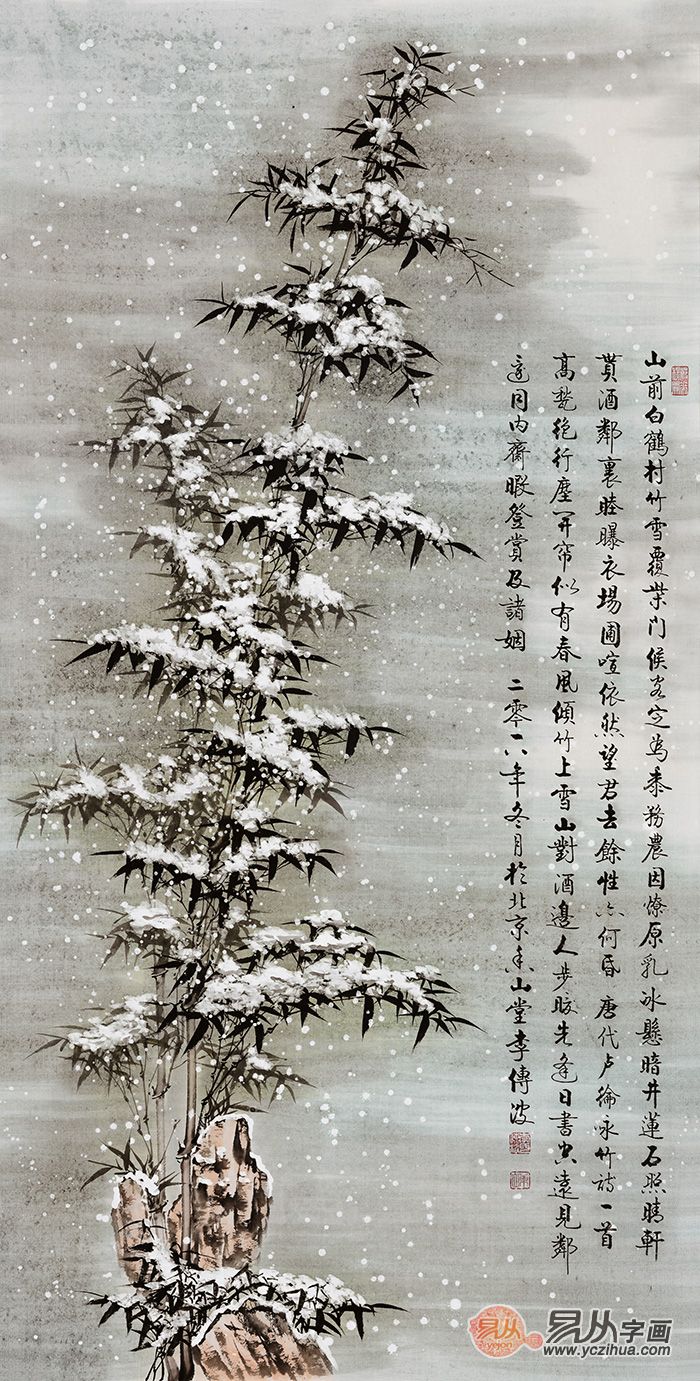 山前白鶴村竹雪覆柴門候客定為黍務農因燎原乳冰懸暗井蓮石照晴軒
貰酒鄰里睦曝衣場圃喧依然望君去餘性六何昏 唐代卢綸咏竹诗一首
高甃絶行塵开帘似有春風傾竹上雪山對酒邊人步暖先逢日書空遠見鄰
適同内齋暇登賞及諸姻 二零一八年冬月於北京香山堂李傳波
易从
yejon
易从字画
www.yczihua.com